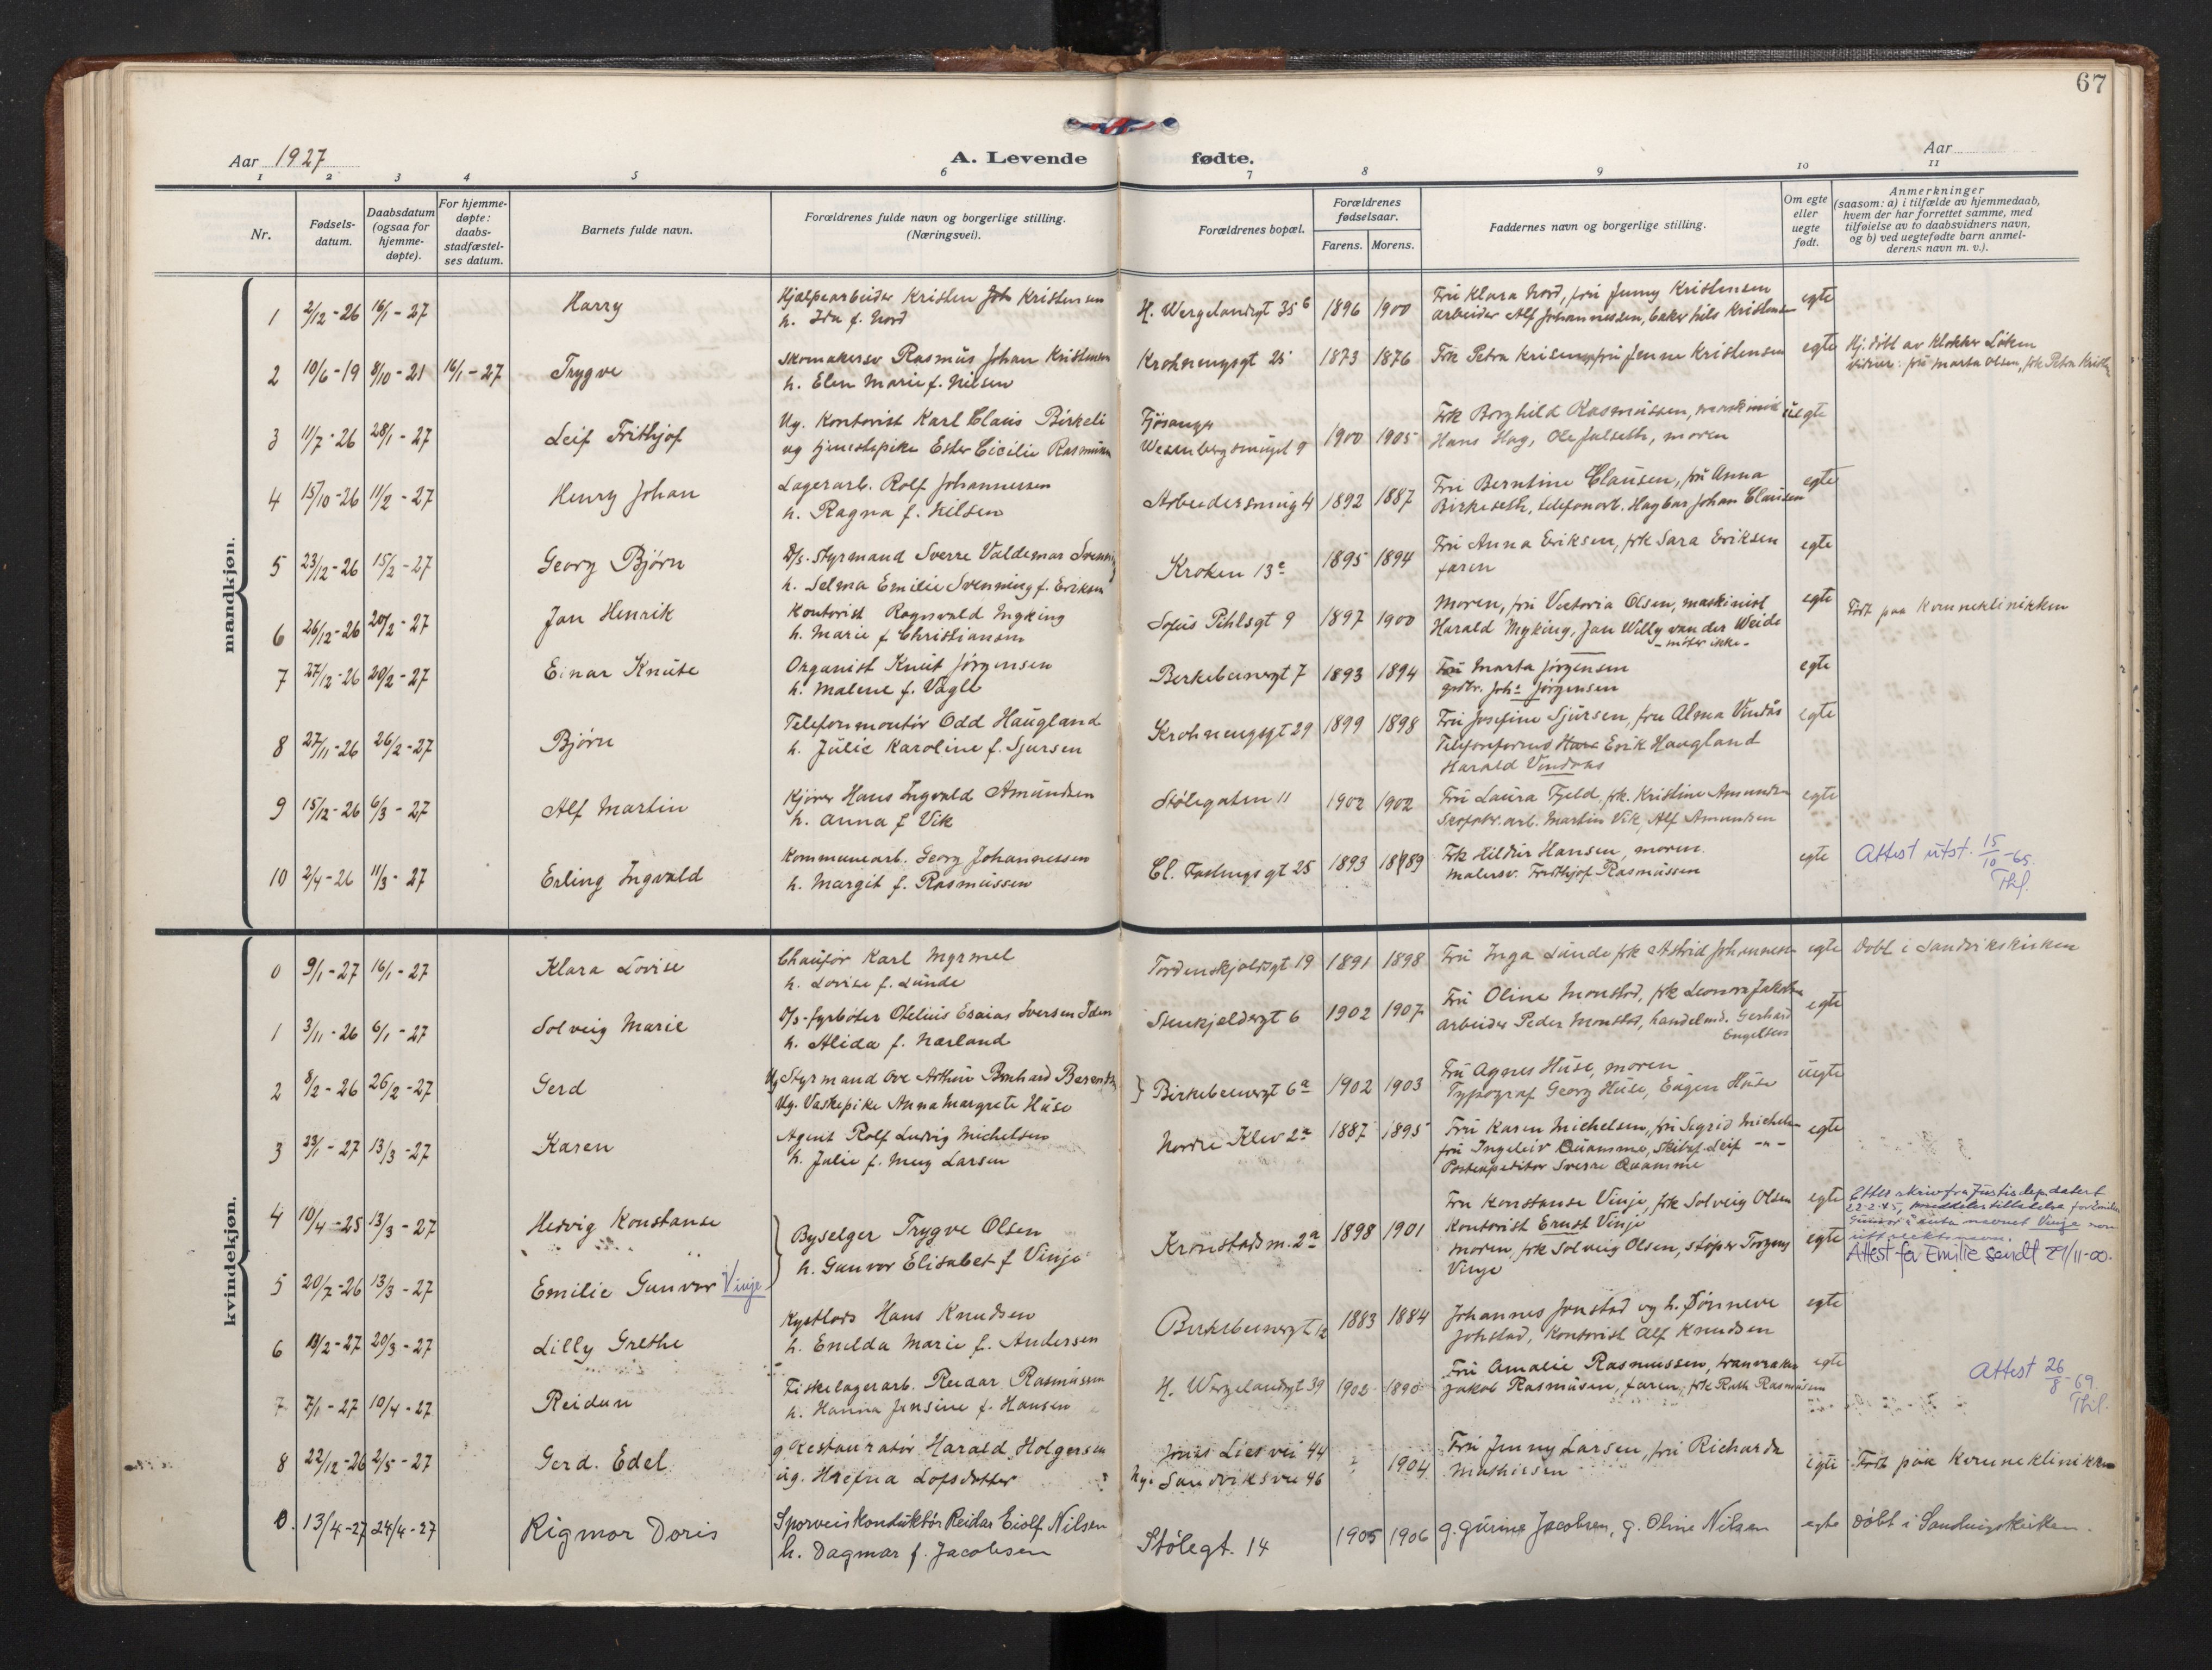 67
Aar 1927
A. Levende fødte.
Aar
1 2 3 4 5 6 7 8 9 10 11
Nr.
Fødsels-
datum.
Daabsdatum
(ogsaa for
hjemme-
døpte).
For hjemme-
døpte:
daabs-
stadfæstel-
ses datum.
Barnets fulde navn.
Forældrenes fulde navn og borgerlige stilling.
(Næringsvei).
Forældrenes bopæl.
Forældrenes
fødselsaar.
Farens. Morens.
Faddernes navn og borgerlige stilling.
Om egte
eller
uegte
født.
Anmerkninger
(saasom: a) i tilfælde av hjemmedaab,
hvem der har forrettet samme, med
tilføielse av to daabsvidners navn,
og b) ved uegtefødte barn anmel-
derens navn m. v.).
mandkjøn.
1 2/12-26 16/1-27 Harry
Hjælpearbeider Kristen Joh Kristensen
h. Ida f. Nord
H. Wergelandsgt 35 b 1896 1900
Fru Klara Nord, fru Jenny Kristensen
arbeider Alf Johannessen, baker Nils Kristensen
egte
2 10/6-19 8/10-21 16/1-27 Trygve
Skomakersv Rasmus Johan Kristensen
h. Elen Marie f. Nilsen
Krohnengsgt 25 1873 1876
Frk Petra Krisensen, fru Jenne Kristensen
egte
Hj. døbt av Klokker Løken
vidner: fru Marta Olsen, frk Petra Kristen
3 11/7-26 28/1-27 Leif Frithjof
Ug. Kontorist Karl Claus Birkeli
ug tjenestepike Ester Cicilie Rasmussen
Fjøsanger
Wesenbergsmuget 9 1900 1905
Frk Borghild Rasmussen, maskinist
Hans Hag, Ole Julseth, moren
uegte
4 15/10-26 11/2-27 Henry Johan
Lagerarb. Rolf Johannessen
h. Ragna f. Nilsen
Arbeidersmug 4 1892 1887
Fru Berntine Clausen, fru Anna
Birkeseth, telefonarb. Hagbar Johan Clausen
egte
5 23/12-26 15/2-27 Georg Bjørn
D/s. styrmand Sverre Valdemar Svenning
h. Selma Emilie Svenning f. Eriksen
Kroken 13c 1895 1894
Fru Anna Eriksen, frk Sara Eriksen
faren
egte
6 26/12-26 20/2-27 Jan Henrik
Kontorist Ragnvald Myking
h. Marie f Christiansen
Sofus Pihlsgt 9 1897 1900
Moren, fru Victoria Olsen, maskinist
Harald Myking, Jan Willy van der Weide
- møter ikke -
egte
Født paa Kvinneklinikken
7 27/12-26 20/2-27 Einar Knute
Organist Knut Jørgensen
h. Malene f. Vagle
Birkebeinergt 7 1893 1894
Fru Marta Jørgensen
grdbr. Johs Jørgensen
egte
8 27/11-26 26/2-27 Bjørn
Telefonmontør Odd Haugland
h. Julie Karoline f. Sjursen
Krohnengsgt 29 1899 1898
Fru Josefine Sjursen, fru Alma Vindås
Telefonformd Hans Erik Haugland
Harald Vindaas
egte
9 15/12-26 6/3-27 Alf Martin
Kjører Hans Ingvald Amundsen
h. Anna f Vik
Stølegaten 11 1902 1902
Fru Laura Fjeld, frk. Kristine Amundsen
Skofabr. arb. Martin Vik, Alf Amundsen
egte
10 2/4-26 11/3-27 Erling Ingvald
Kommunearb. Georg Johannessen
h. Margit f. Rasmussen
Cl. Fastingsgt 25 1893 1889
Frk Hildur Hansen, moren.
Malersv. Fridthjof Rasmussen
egte
Attest utst. 15/10-65.
Thf.
kvindekjøn.
0 9/1-27 16/1-27 Klara Lovise
Chauför Karl Myrmel
h. Lovise f. Lunde
Tordenskjoldsgt 19 1891 1898
Fru Inga Lunde frk Astrid Johannesen
egte
Døbt i Sandvikskirken
1 3/11-26 6/1-27 Solveig Marie
D/s-fyrbøter Otelius Esaias Iversen Iden
h. Alida f. Nærland
Stenkjeldergt 6 1902 1907
Fru Oline Monstad, frk Leonora Jakobsen
arbeider Peder Monstad, handelsmd. Gerhard
Engelsen
egte
2 8/2-26 26/2-27 Gerd
Ug Styrmand Ove Arthur Bernhard Berentsen
Ug. Vaskepike Anna Margrete Huse
Birkebeinergt 6a 1902 1903
Fru Agnes Huse, moren
Typograf Georg Huse, Eugen Huse
uegte
3 23/1-27 13/3-27 Karen
Agent Rolf Ludvig Michelsen
h. Julie f. Meng Larsen
Nordre Klev 2a 1887 1895
Fru Karen Michelsen, fru Sigrid Michelsen
fru Ingeleiv Quamme, Skibsf. Leif -"-
Postexpeditør Sverre Quamme
egte
4 10/4-25 13/3-27 Hedvig Konstanse
Byselger Trygve Olsen
h. Gunvor Elisabet f Vinje
Kronstadsm. 2a 1898 1901
Fru Konstanse Vinje, frk Solveig Olsen
Kontorist Ernst Vinje
egte
Etter skriv fra Justisdep. datert
22-2-45, meddeles tillatelse for Emilie
Gunvor å anta navnet Vinje som
5 20/7-26 13/3-27 Emilie Gunvor Vinje
moren, frk Solveig Olsen, støper Torgeus
Vinje
egte
Attest for Emilie sendt 21/11-00.
6 10/2-27 20/3-27 Lilly Grethe
Kystlods Hans Knudsen
h. Enelda Marie f. Andersen
Birkebeinergt 12 1883 1884
Johannes Jonstad og h. Sønneve
Johstad, Kontorist Alf Knudsen
egte
7 7/1-27 10/4-27 Reidun
Fiskelagerarb. Reidar Rasmussen
h. Hanna Jensine f. Hansen
H. Wergelandsgt 39 1902 1890
Fru Amalie Rasmussen, tranvraker
Jakob Rasmussen, faren, frk Ruth Rasmussen
egte
Attest 26/8-69.
Thf.
8 22/12-26 2/5-27 Gerd. Edel
g Restauratør Harald Holgersen
ug. Hrefna Lofsdotter
Jonas Lies vei 44
Sandviksvei 46 1904
Fru Jenny Larsen, fru Richarda
Mathiesen
egte
Født paa Kvinneklinikken
0. 13/4-27 24/4-27 Rigmor Doris
Sporveiskonduktør Reidar Eiolf Nilsen
h. Dagmar f. Jacobsen
Stølegt. 14 1905 1906
g. Gurine Jacobsen, g. Oline Nilsen
egte
Døbt i Sandvigskirken.